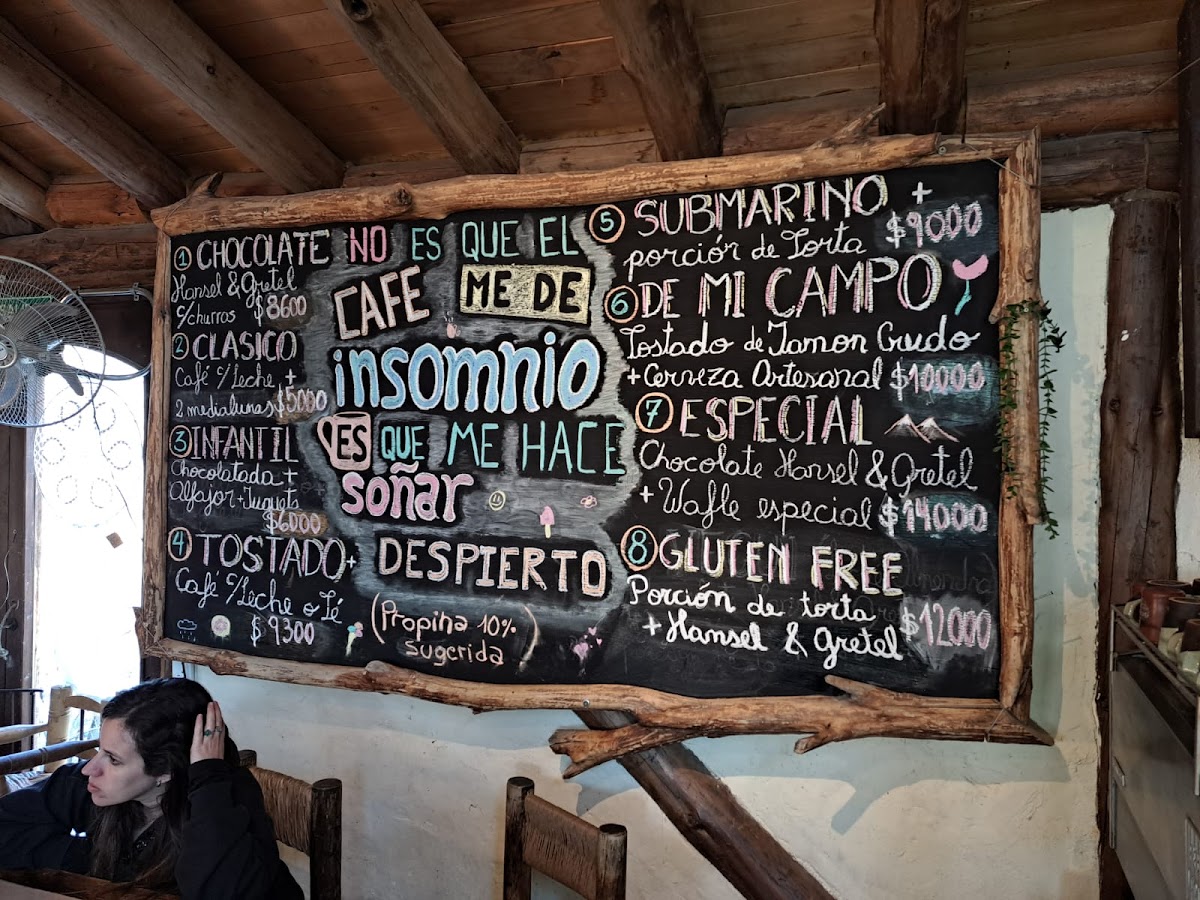 1 CHOCOLATE
Hansel & Gretel
c/churros $8600
2 CLASICO
Café c/Leche +
2 medialunas $5000
3 INFANTIL
Chocolatada +
Alfajor + Juguito
$6000
4 TOSTADO +
Café c/Leche o Té
$9300
NO ES QUE EL
CAFE ME DE
insomnio
ES QUE ME HACE
soñar
DESPIERTO
(Propina 10%
sugerida)
5 SUBMARINO +
porción de Torta $9000
6 DE MI CAMPO
Tostado de Jamon Crudo
+ Cerveza Artesanal $10000
7 ESPECIAL
Chocolate Hansel & Gretel
+ Wafle especial $14000
8 GLUTEN FREE
Porción de torta
+ Hamsel & Gretel $12000